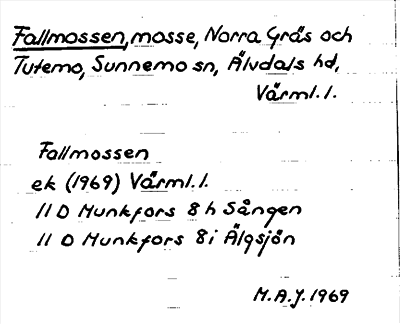 Fallmossen, mosse, Norra Gräs och
Tutemo, Sunnemo sn, Älvdals hd,
Värml. l.
Fallmossen
ek (1969) Värml. l.
11 D Munkfors 8 h Sången
11 D Munkfors 8 i Älgsjön
M.A.J. 1969